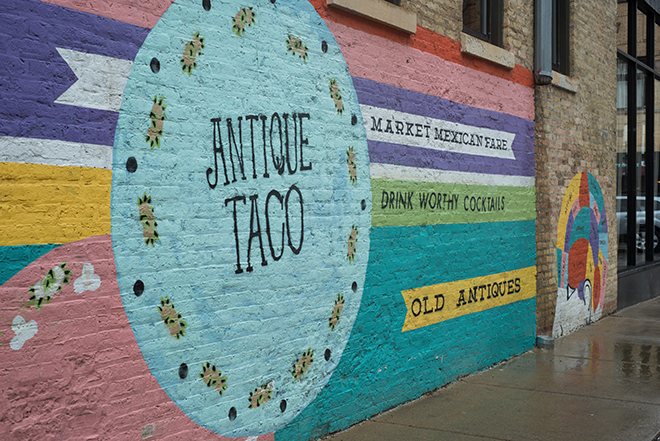 ANTIQUE
TACO
MARKET MEXICAN FARE
DRINK WORTHY COCKTAILS
OLD ANTIQUES